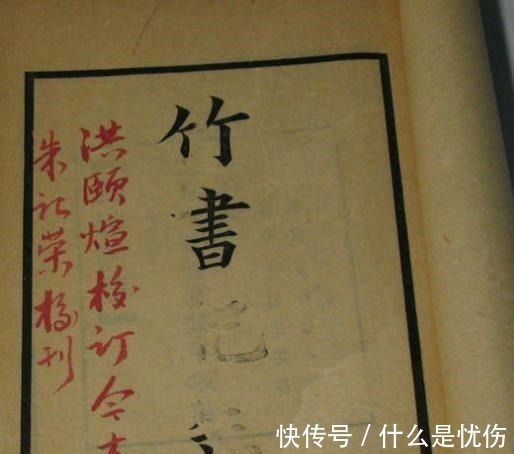 竹書
洪頤煊校订今
朱记荣校刊
快传号 / 什么是忧伤